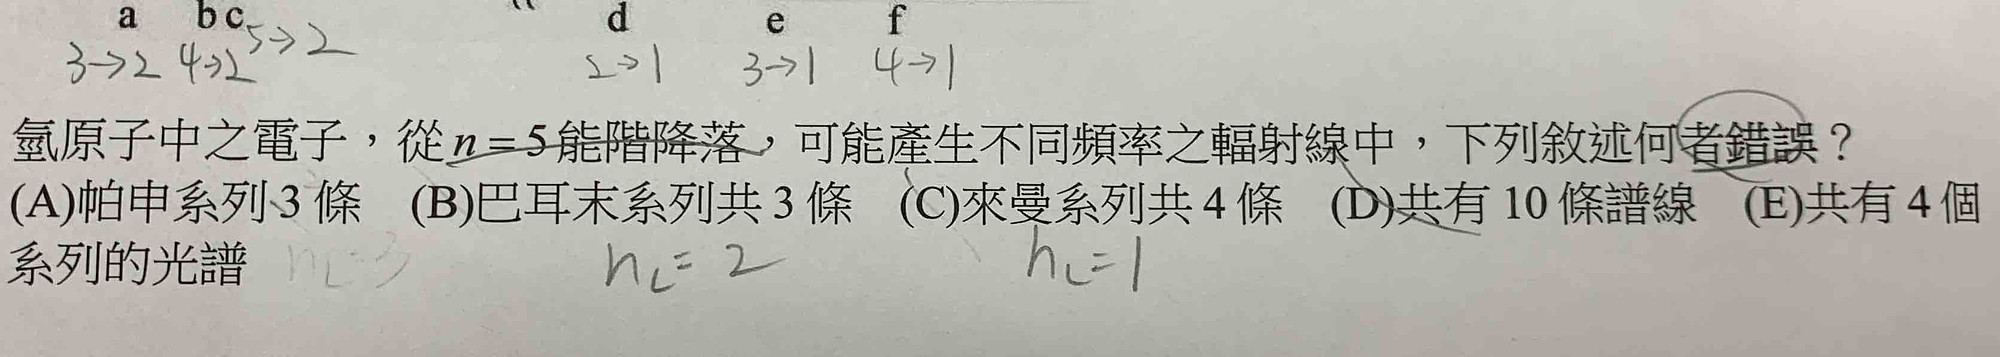 a b c d e f
3→2 4→2 5→2 2→1 3→1 4→1
氫原子中之電子，從 n = 5 能階降落，可能產生不同頻率之輻射線中，下列敘述何者錯誤？
(A)帕申系列 3 條 (B)巴耳末系列共 3 條 (C)來曼系列共 4 條 (D)共有 10 條譜線 (E)共有 4 個
系列的光譜 nL=3 nL=2 nL=1